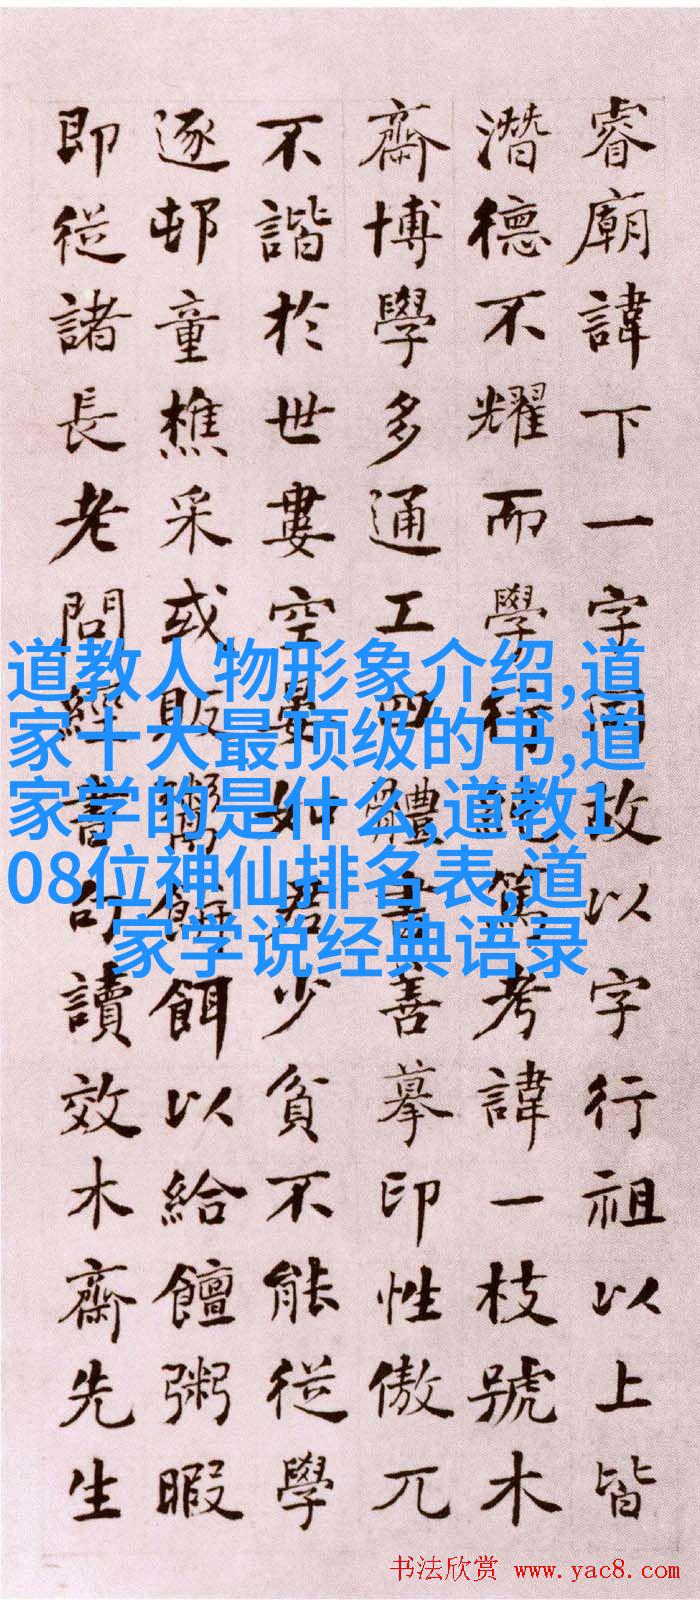 睿廟諱下一字同故以字行祖以上皆
潛德不耀而學行純篤考諱一枝號木
齋博學多通工四體書善摹印性傲兀
不諧於世婁空晏如君少貧不能從學
逐邨童樵采或販鬻餅餌以給饘粥暇
即從諸長老問經書句讀效木齋先生
道教人物形象介绍,道
家十大最顶级的书,道
家学的是什么,道教1
08位神仙排名表,道
家学说经典语录
书法欣赏 www.yac8.com